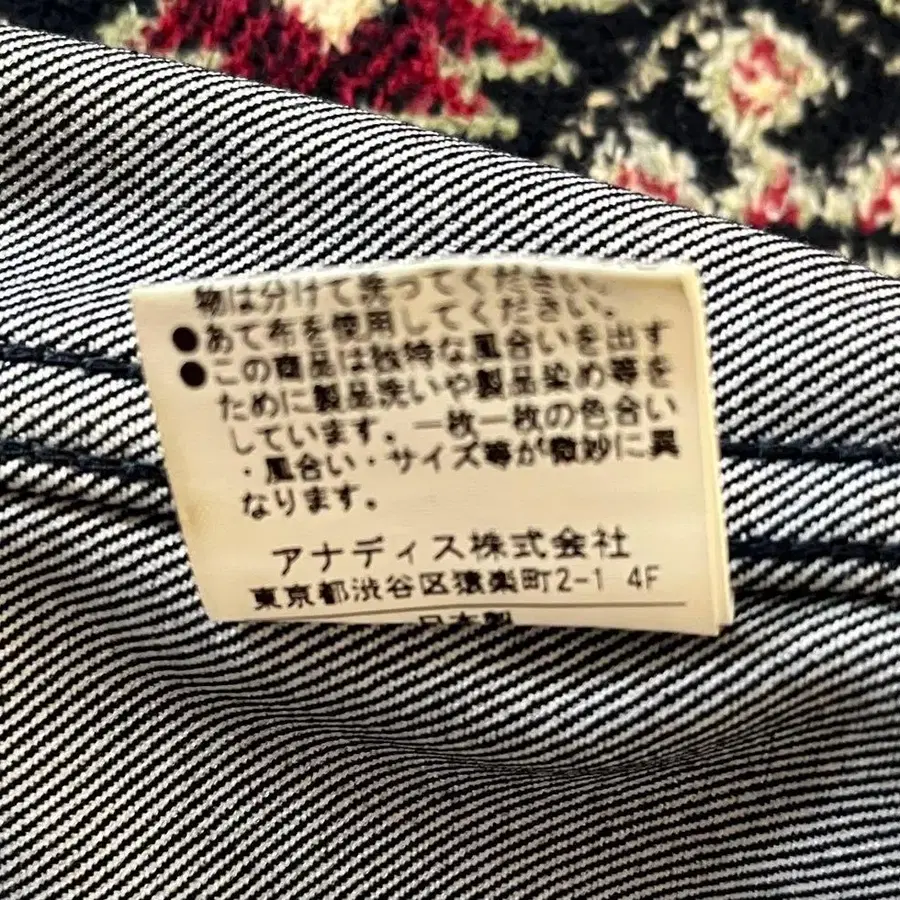 物は分けて洗ってください。
●あて布を使用してください。
●この商品は独特な風合いを出す
ために製品洗いや製品染め等を
しています。一枚一枚の色合い
・風合い・サイズ等が微妙に異
なります。
アナディス株式会社
東京都渋谷区猿楽町2-1 4F
日本製